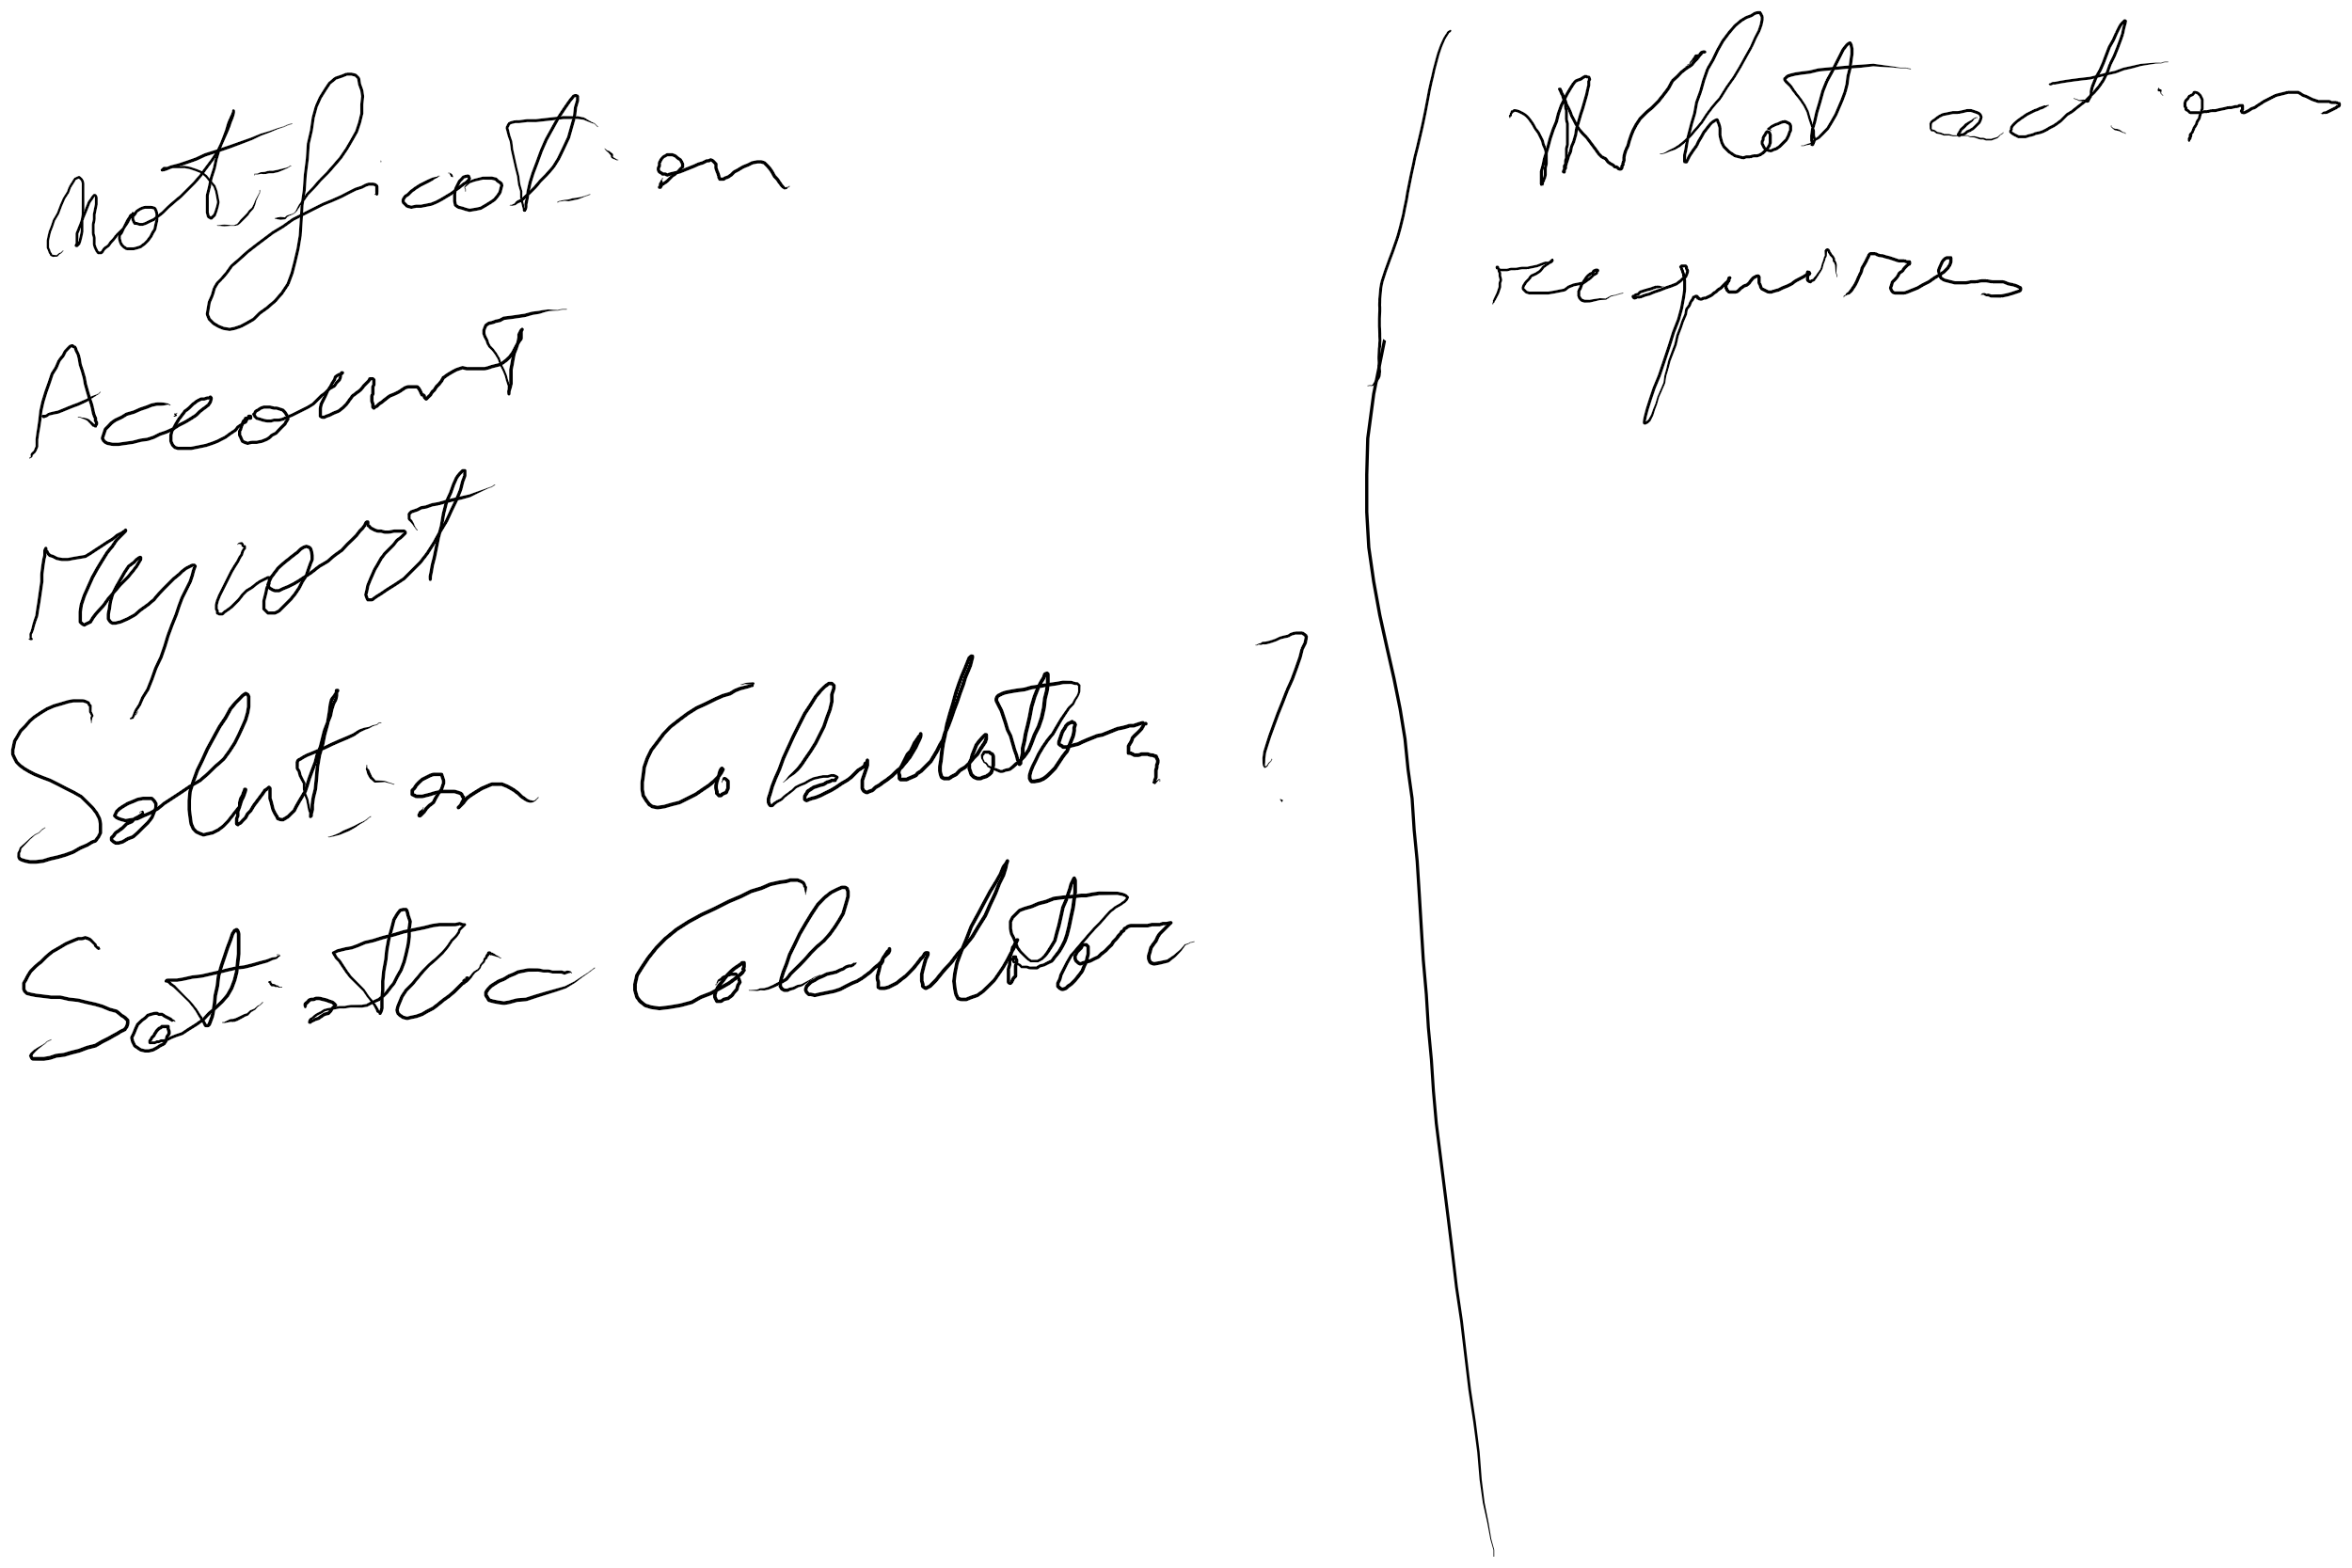 notification
Account
report
Solution Calculation?
Satistic Calculator
What action
requires